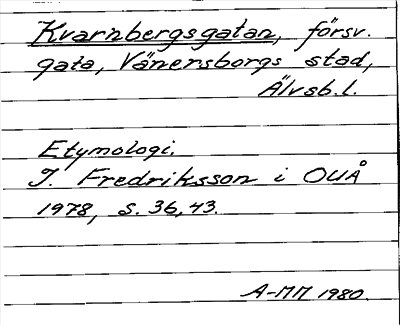 Kvarnbergsgatan, försv.
gata, Vänersborgs stad,
Älvsb. l.
Etymologi.
I. Fredriksson i OUÅ
1978, s. 36, 43.
A-MM 1980.